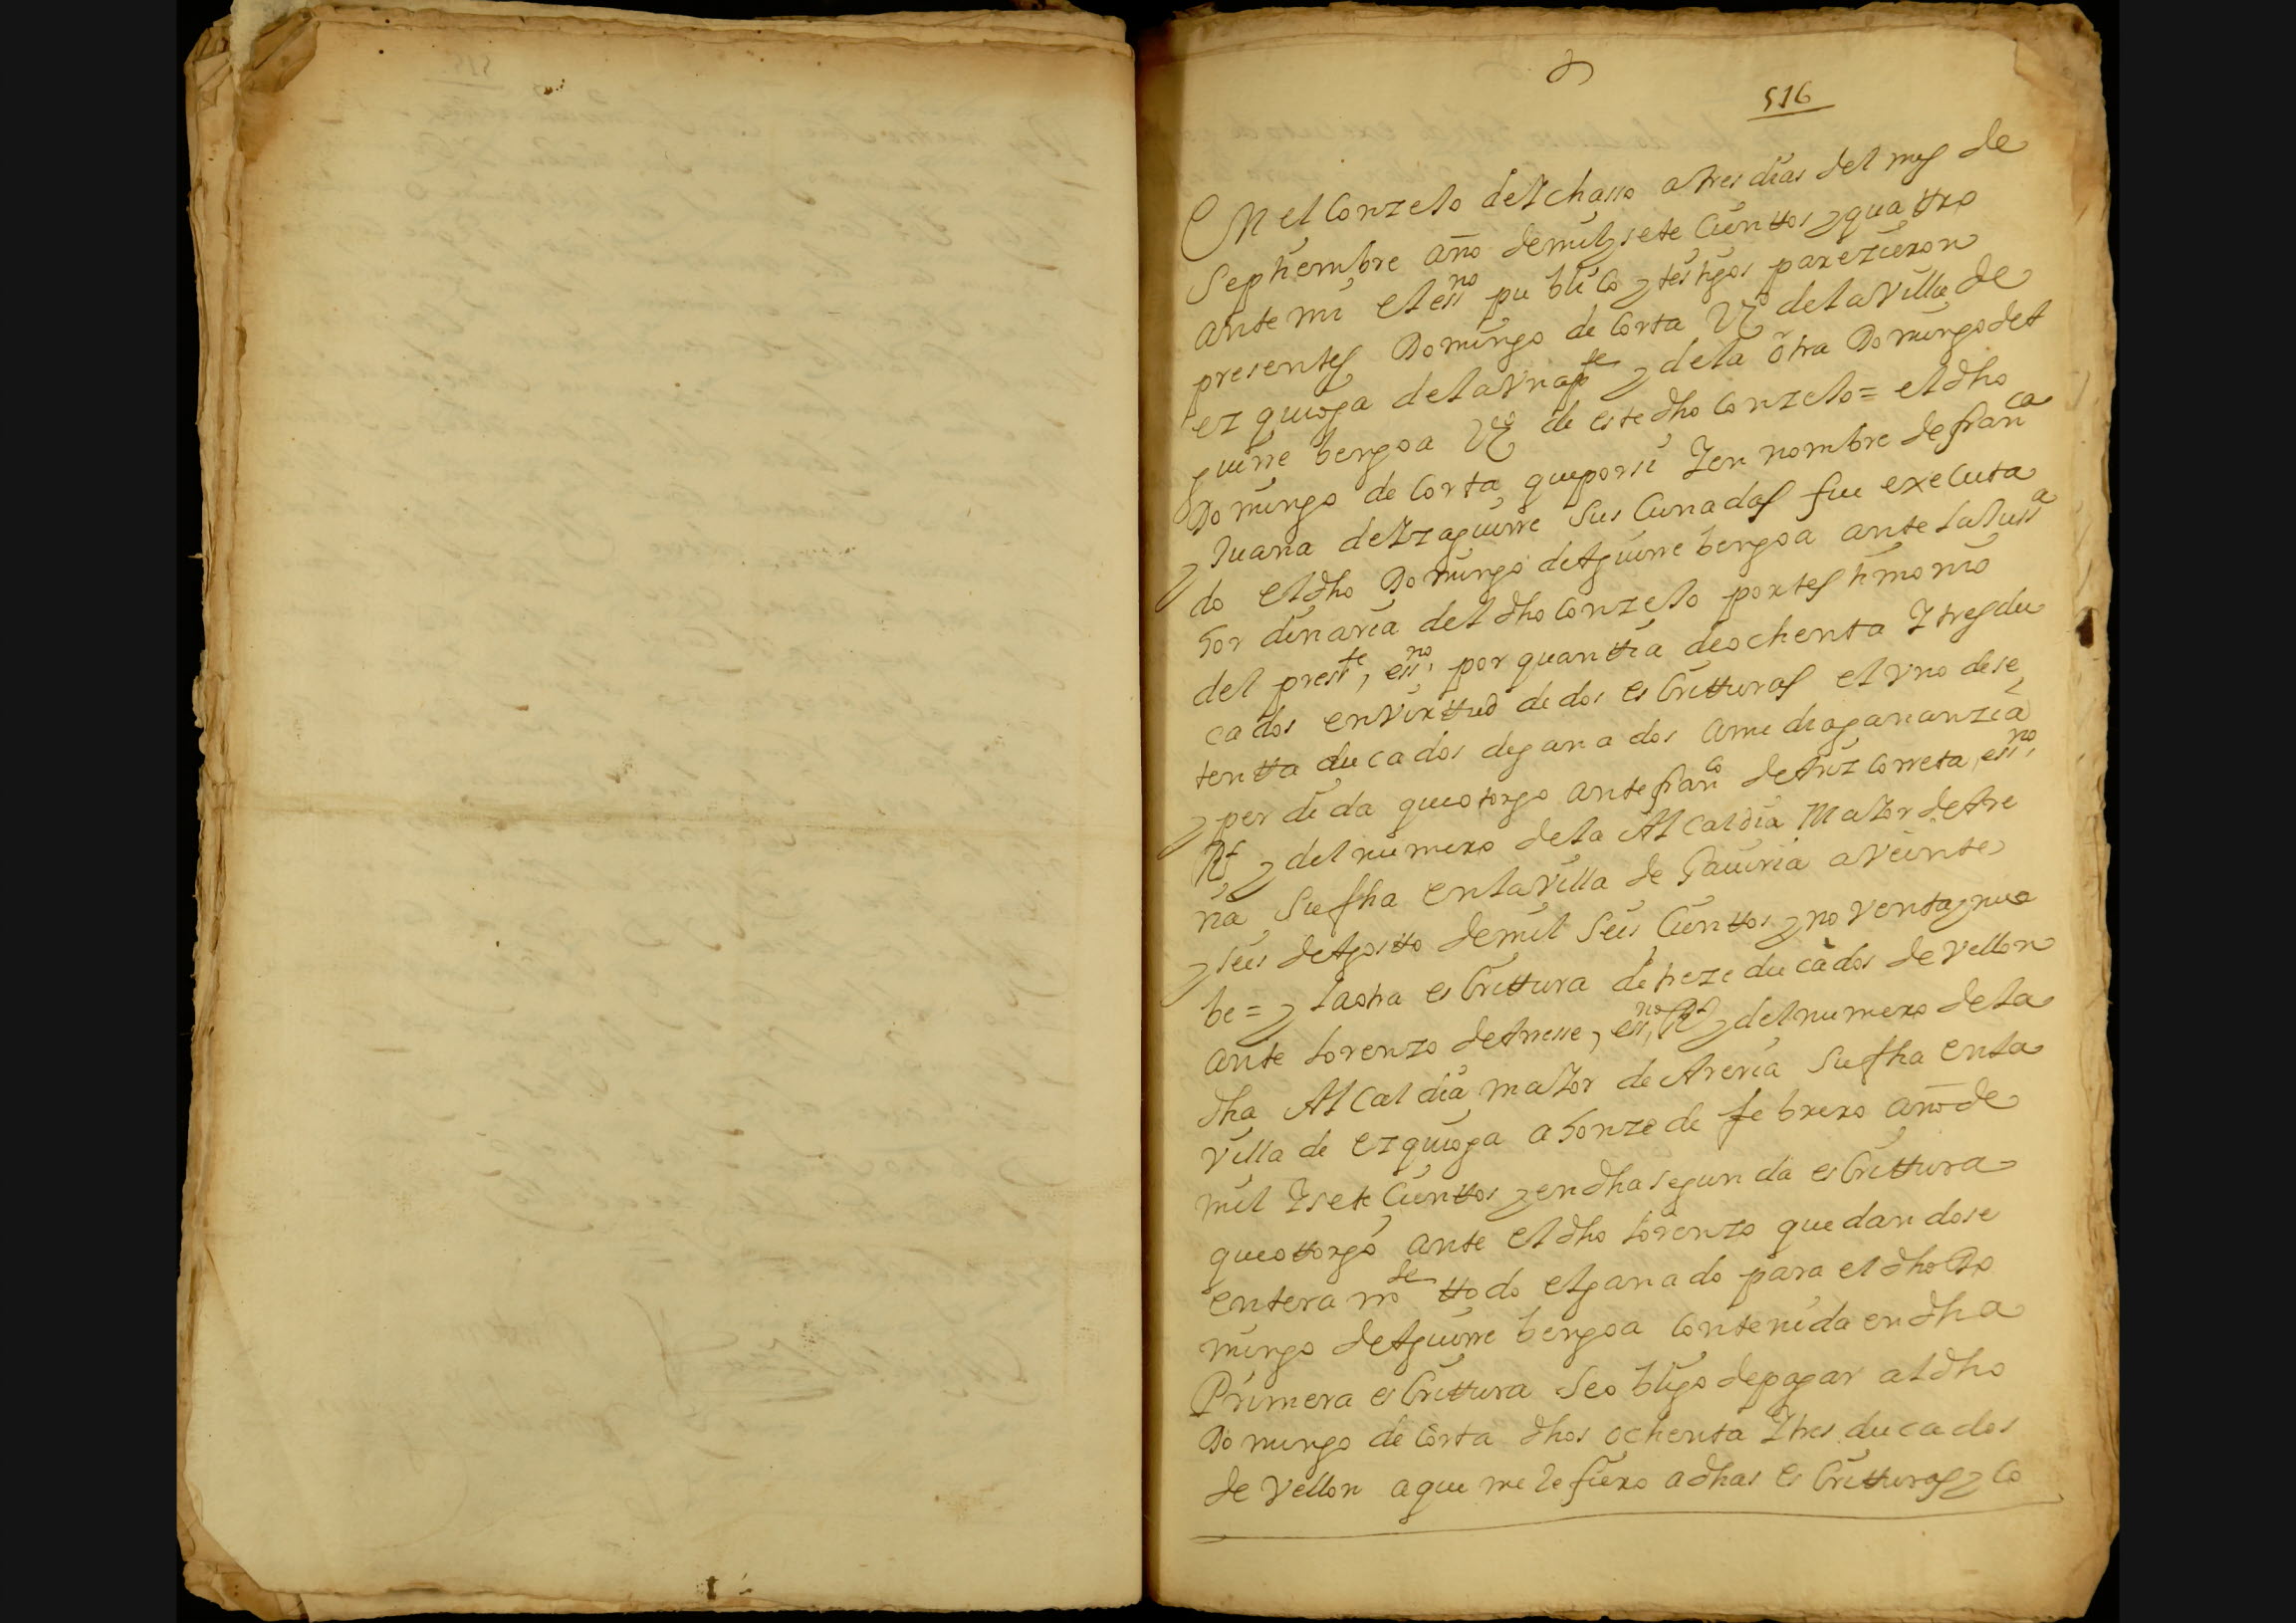 516
En el Conzejo de Ichasso a tres dias del mes de
Septiembre año de mil y sete Cienttos y quattro
ante mi el essno publico y testigos parezieron
presentes Domingo de Corta Vº de la Villa de
ezquioga de la Vna pte y de la otra Domingo de A
guirre bengoa Vº de este dho Conzejo = el dho
Domingo de Corta que por si Y en nombre de franca
y Juana de Izaguirre Sus Cunadas fue executa
do el dho Domingo de Aguirre bengoa ante la Jussa
hordinaria del dho Conzejo por testimonio
del presste, essno, por quanttia de ochenta Y tres du
cados en Virttud de dos esCritturas el Vno de se
tentta ducados de ganados a media gananzia
y perdida que otorgo ante franco de Aruz Correta, essno,
Rl y del numero de la Alcaldia Maior de Are
ria Su fha en la Villa de Gauiria a Veinte
y seis de Agostto de mil Seis Cienttos y noventa y nue
be = y la otra esCrittura de treze ducados de Vellon
ante Lorenzo de Arresse, essno, Rl y del numero de la
dha Alcaldia maior de Areria Su fha en la
Villa de ezquioga a honze de febrero año de
mil Y sete Cienttos y en dha segunda esCrittura
que ottorgo ante el dho Lorenzo quedandose
enteramte ttodo el ganado para el dho Do
mingo de Aguirre bengoa Contenida en dha
Primera esCrittura Se obligo de pagar al dho
Domingo de Corta dhos ochenta Y tres ducados
de Vellon a que me Refiero a dhas esCritturas y Co